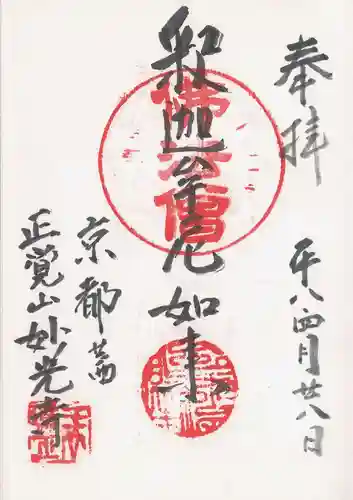 奉拝
平八四月廿八日
釈迦牟尼如来
佛法僧
京都
正覚山妙光寺